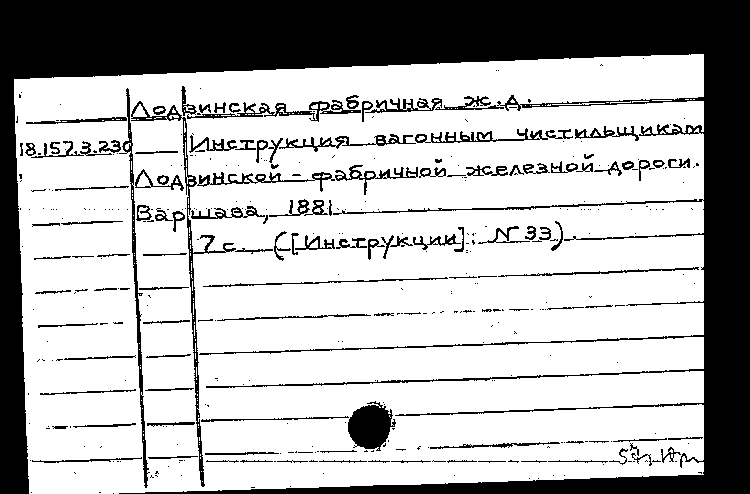 Лодзинская фабричная ж.д.
18.157.3.230 Инструкция вагонным чистильщикам
Лодзинской - фабричной железной дороги.
Варшава, 1881.
7 с. ([Инструкции]: № 33).